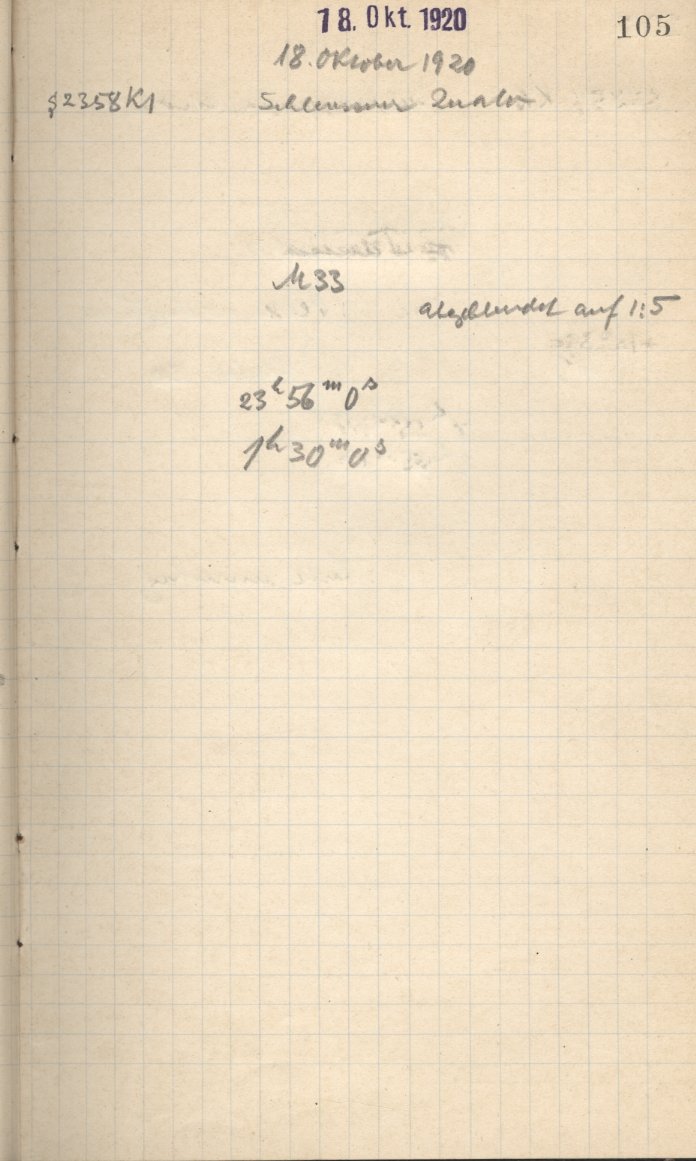 18. Okt. 1920
105
18. Oktober 1920
S2358K1 Schleussner
M33
abgeblendet auf 1:5
23h 56m 0s
1h 30m 0s